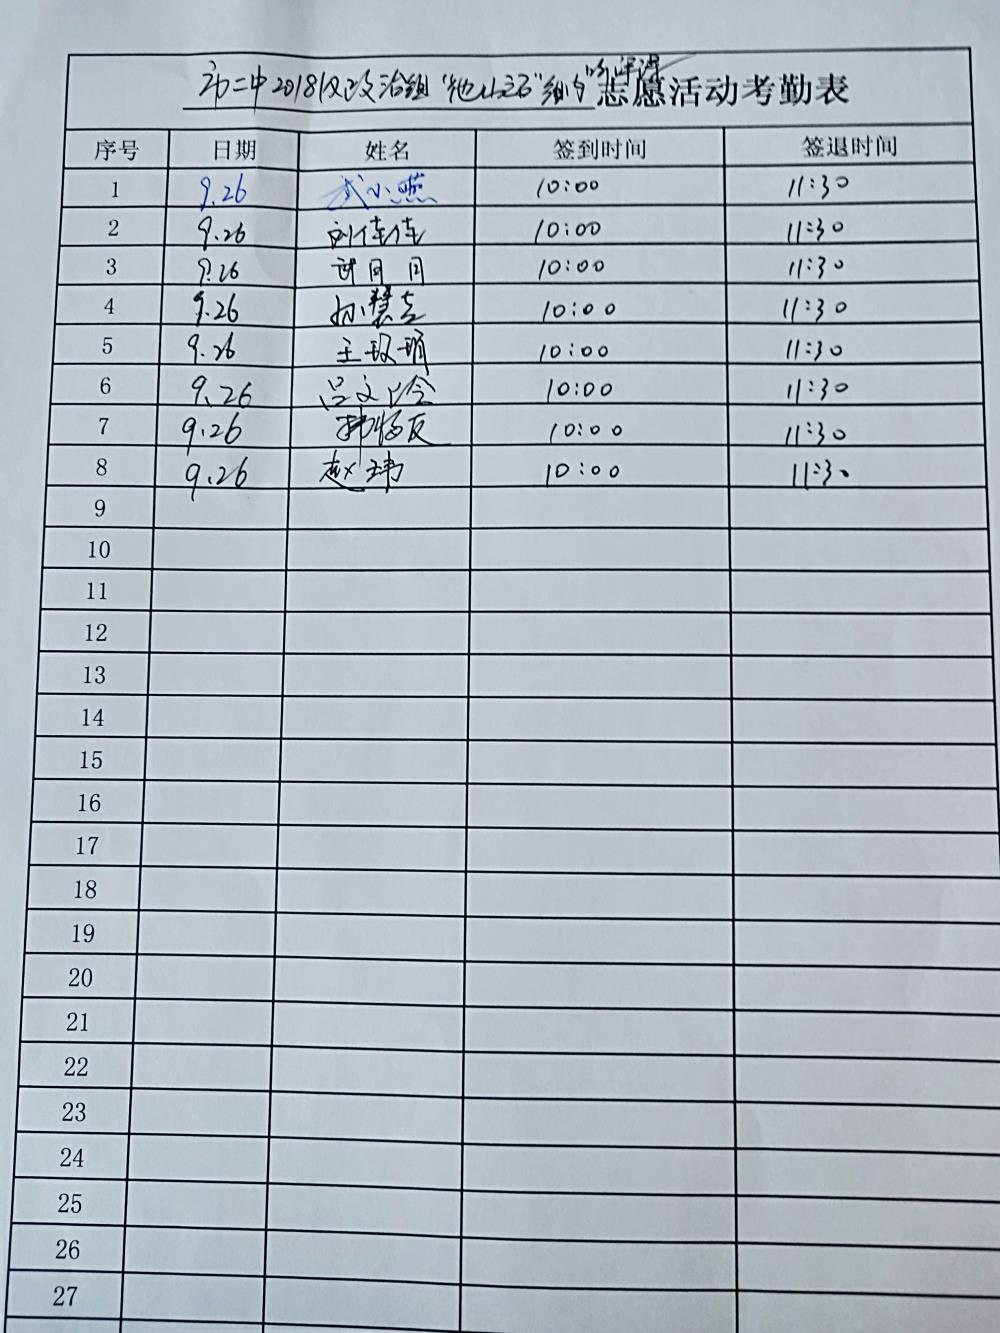 市二中2018级政治组"他山之石" 志愿活动考勤表
序号 日期 姓名 签到时间 签退时间
1 9.26 武小燕 10:00 11:30
2 9.26 刘佳佳 10:00 11:30
3 9.26 10:00 11:30
4 9.26 孙慧 10:00 11:30
5 9.26 王 10:00 11:30
6 9.26 吕文 10:00 11:30
7 9.26 10:00 11:30
8 9.26 赵玮 10:00 11:30
9
10
11
12
13
14
15
16
17
18
19
20
21
22
23
24
25
26
27